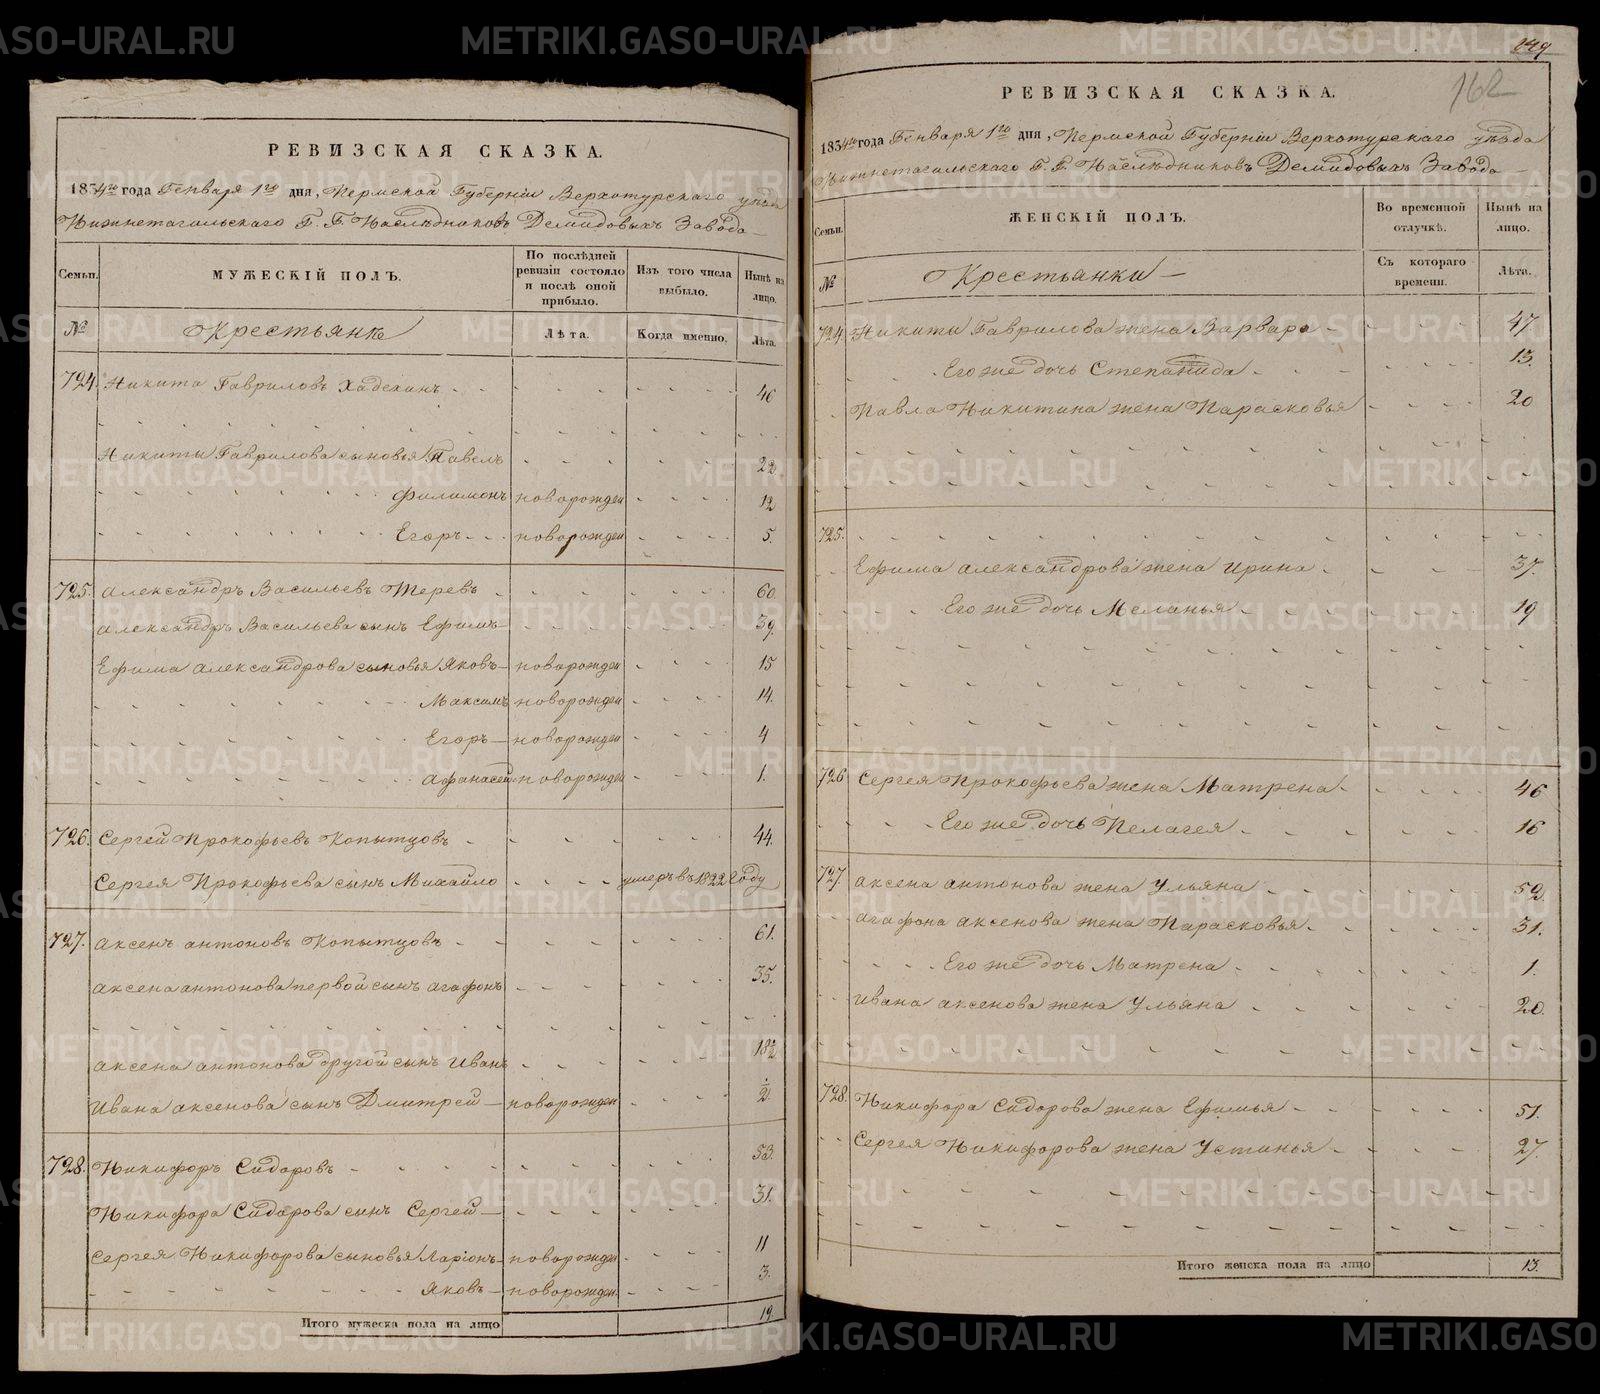 РЕВИЗСКАЯ СКАЗКА.
1834го года Генваря 1го дня, Пермской Губерніи Верхотурскаго уѣзда
Нижнетагильскаго Г. Г. Наслѣдниковъ Демидовыхъ Завода
Семьи. МУЖЕСКІЙ ПОЛЪ. По послѣдней ревизіи состояло и послѣ оной прибыло. Изъ того числа выбыло. Нынѣ на лицо.
№ Крестьянѣ Лѣта. Когда именно. Лѣта.
724. Никита Гавриловъ 46
Никиты Гаврилова сыновья Павелъ 22
Филимонъ новорожден 12
Егоръ новорожден 5.
725. Александръ Васильевъ Теревъ 60
Александръ Васильева сынъ Ефимъ 39.
Ефима Александрова сыновья Яковъ новорожден 15
Максимъ новорожден 14.
Егоръ новорожден 4
Афанасей новорожден 1.
726. Сергей Прокофьевъ Копытцовъ 44.
Сергея Прокофьева сынъ Михайло умеръ въ 1822 году
727. Аксенъ Антоновъ Копытцовъ 61.
Аксена Антонова первой сынъ Агафонъ 35.
Аксена Антонова другой сынъ Иванъ 18½
Ивана Аксенова сынъ Дмитрей новорожден ½
728. Никифоръ Сидоровъ 53.
Никифора Сидорова сынъ Сергей 31.
Сергея Никифорова сыновья Ларіонъ новорожден 11
Яковъ новорожден. 3.
Итого мужеска пола на лицо 19.
162
РЕВИЗСКАЯ СКАЗКА.
1834го года Генваря 1го дня, Пермской Губерніи Верхотурскаго уѣзда
Нижнетагильскаго Г. Г. Наслѣдниковъ Демидовыхъ Завода
Семьи. ЖЕНСКІЙ ПОЛЪ. Во временной отлучкѣ. Нынѣ на лицо.
№ Крестьянки Съ котораго времени. Лѣта.
724. Никиты Гаврилова жена Варвара 47
Его же дочь Степанида 13.
Павла Никитина жена Парасковья 20
725.
Ефима Александрова жена Ирина 37.
Его же дочь Меланья 19
726 Сергея Прокофьева жена Матрена 46
Его же дочь Пелагея 16
727. Аксена Антонова жена Ульяна 52
Агафона Аксенова жена Парасковья 31.
Его же дочь Матрена 1.
Ивана Аксенова жена Ульяна 20.
728. Никифора Сидорова жена Ефимья 51.
Сергея Никифорова жена Устинья 27.
Итого женска пола на лицо 13.
METRIKI.GASO-URAL.RU